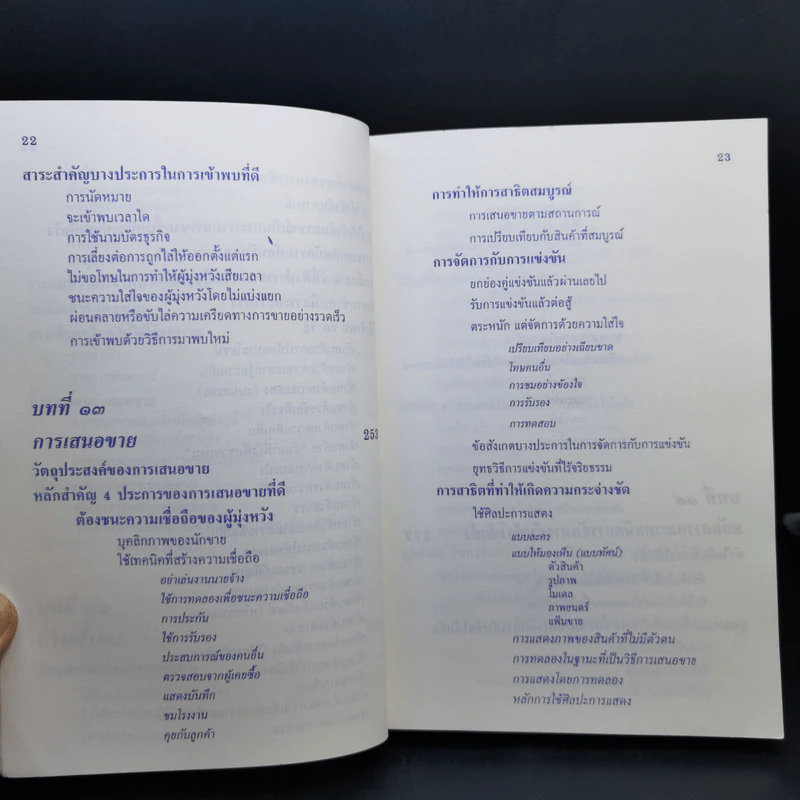 22
สาระสำคัญบางประการในการเข้าพบที่ดี
การนัดหมาย
จะเข้าพบเวลาใด
การใช้นามบัตรธุรกิจ
การเลี่ยงต่อการถูกไล่ให้ออกตั้งแต่แรก
ไม่ขอโทษในการทำให้ผู้มุ่งหวังเสียเวลา
ชนะความใส่ใจของผู้มุ่งหวังโดยไม่แบ่งแยก
ผ่อนคลายหรือขับไล่ความเครียดทางการขายอย่างรวดเร็ว
การเข้าพบด้วยวิธีการมาพบใหม่
บทที่ ๑๓
การเสนอขาย 253
วัตถุประสงค์ของการเสนอขาย
หลักสำคัญ 4 ประการของการเสนอขายที่ดี
ต้องชนะความเชื่อถือของผู้มุ่งหวัง
บุคลิกภาพของนักขาย
ใช้เทคนิคที่สร้างความเชื่อถือ
อย่าเล่นงานนายจ้าง
ใช้การทดลองเพื่อชนะความเชื่อถือ
การประกัน
ใช้การรับรอง
ประสบการณ์ของคนอื่น
ตรวจสอบจากผู้เคยซื้อ
แสดงบันทึก
ชมโรงงาน
คุยกับลูกค้า
23
การทำให้การสาธิตสมบูรณ์
การเสนอขายตามสถานการณ์
การเปรียบเทียบกับสินค้าที่สมบูรณ์
การจัดการกับการแข่งขัน
ยกย่องคู่แข่งขันแล้วผ่านเลยไป
รับการแข่งขันแล้วต่อสู้
ตระหนัก แต่จัดการด้วยความใส่ใจ
เปรียบเทียบอย่างเฉียบขาด
โทษคนอื่น
การชมอย่างข้องใจ
การรับรอง
การทดสอบ
ข้อสังเกตบางประการในการจัดการกับการแข่งขัน
ยุทธวิธีการแข่งขันที่ไร้จริยธรรม
การสาธิตที่ทำให้เกิดความกระจ่างชัด
ใช้ศิลปะการแสดง
แบบละคร
แบบให้มองเห็น (แบบทัศน์)
ตัวสินค้า
รูปภาพ
โมเดล
ภาพยนตร์
แฟ้มขาย
การแสดงภาพของสินค้าที่ไม่มีตัวตน
การทดลองในฐานะที่เป็นวิธีการเสนอขาย
การแสดงโดยการทดลอง
หลักการใช้ศิลปะการแสดง